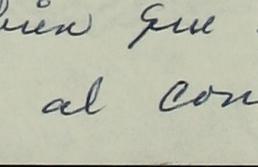 bien que
al con